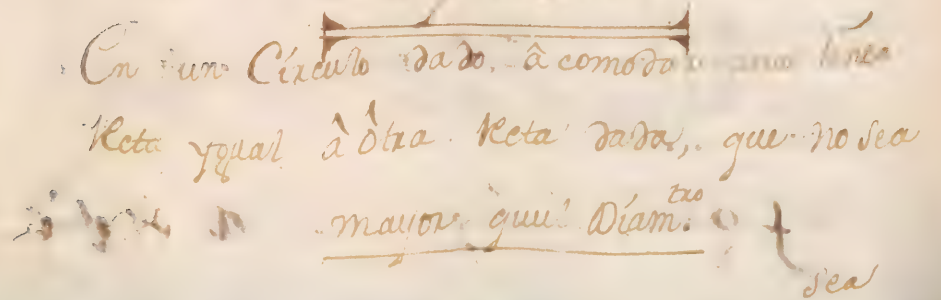 En un Círculo dado, â comodar una línea
Recta ygual â ôtra Recta dada, que no sea
mayor quu' Díam.tro
sea